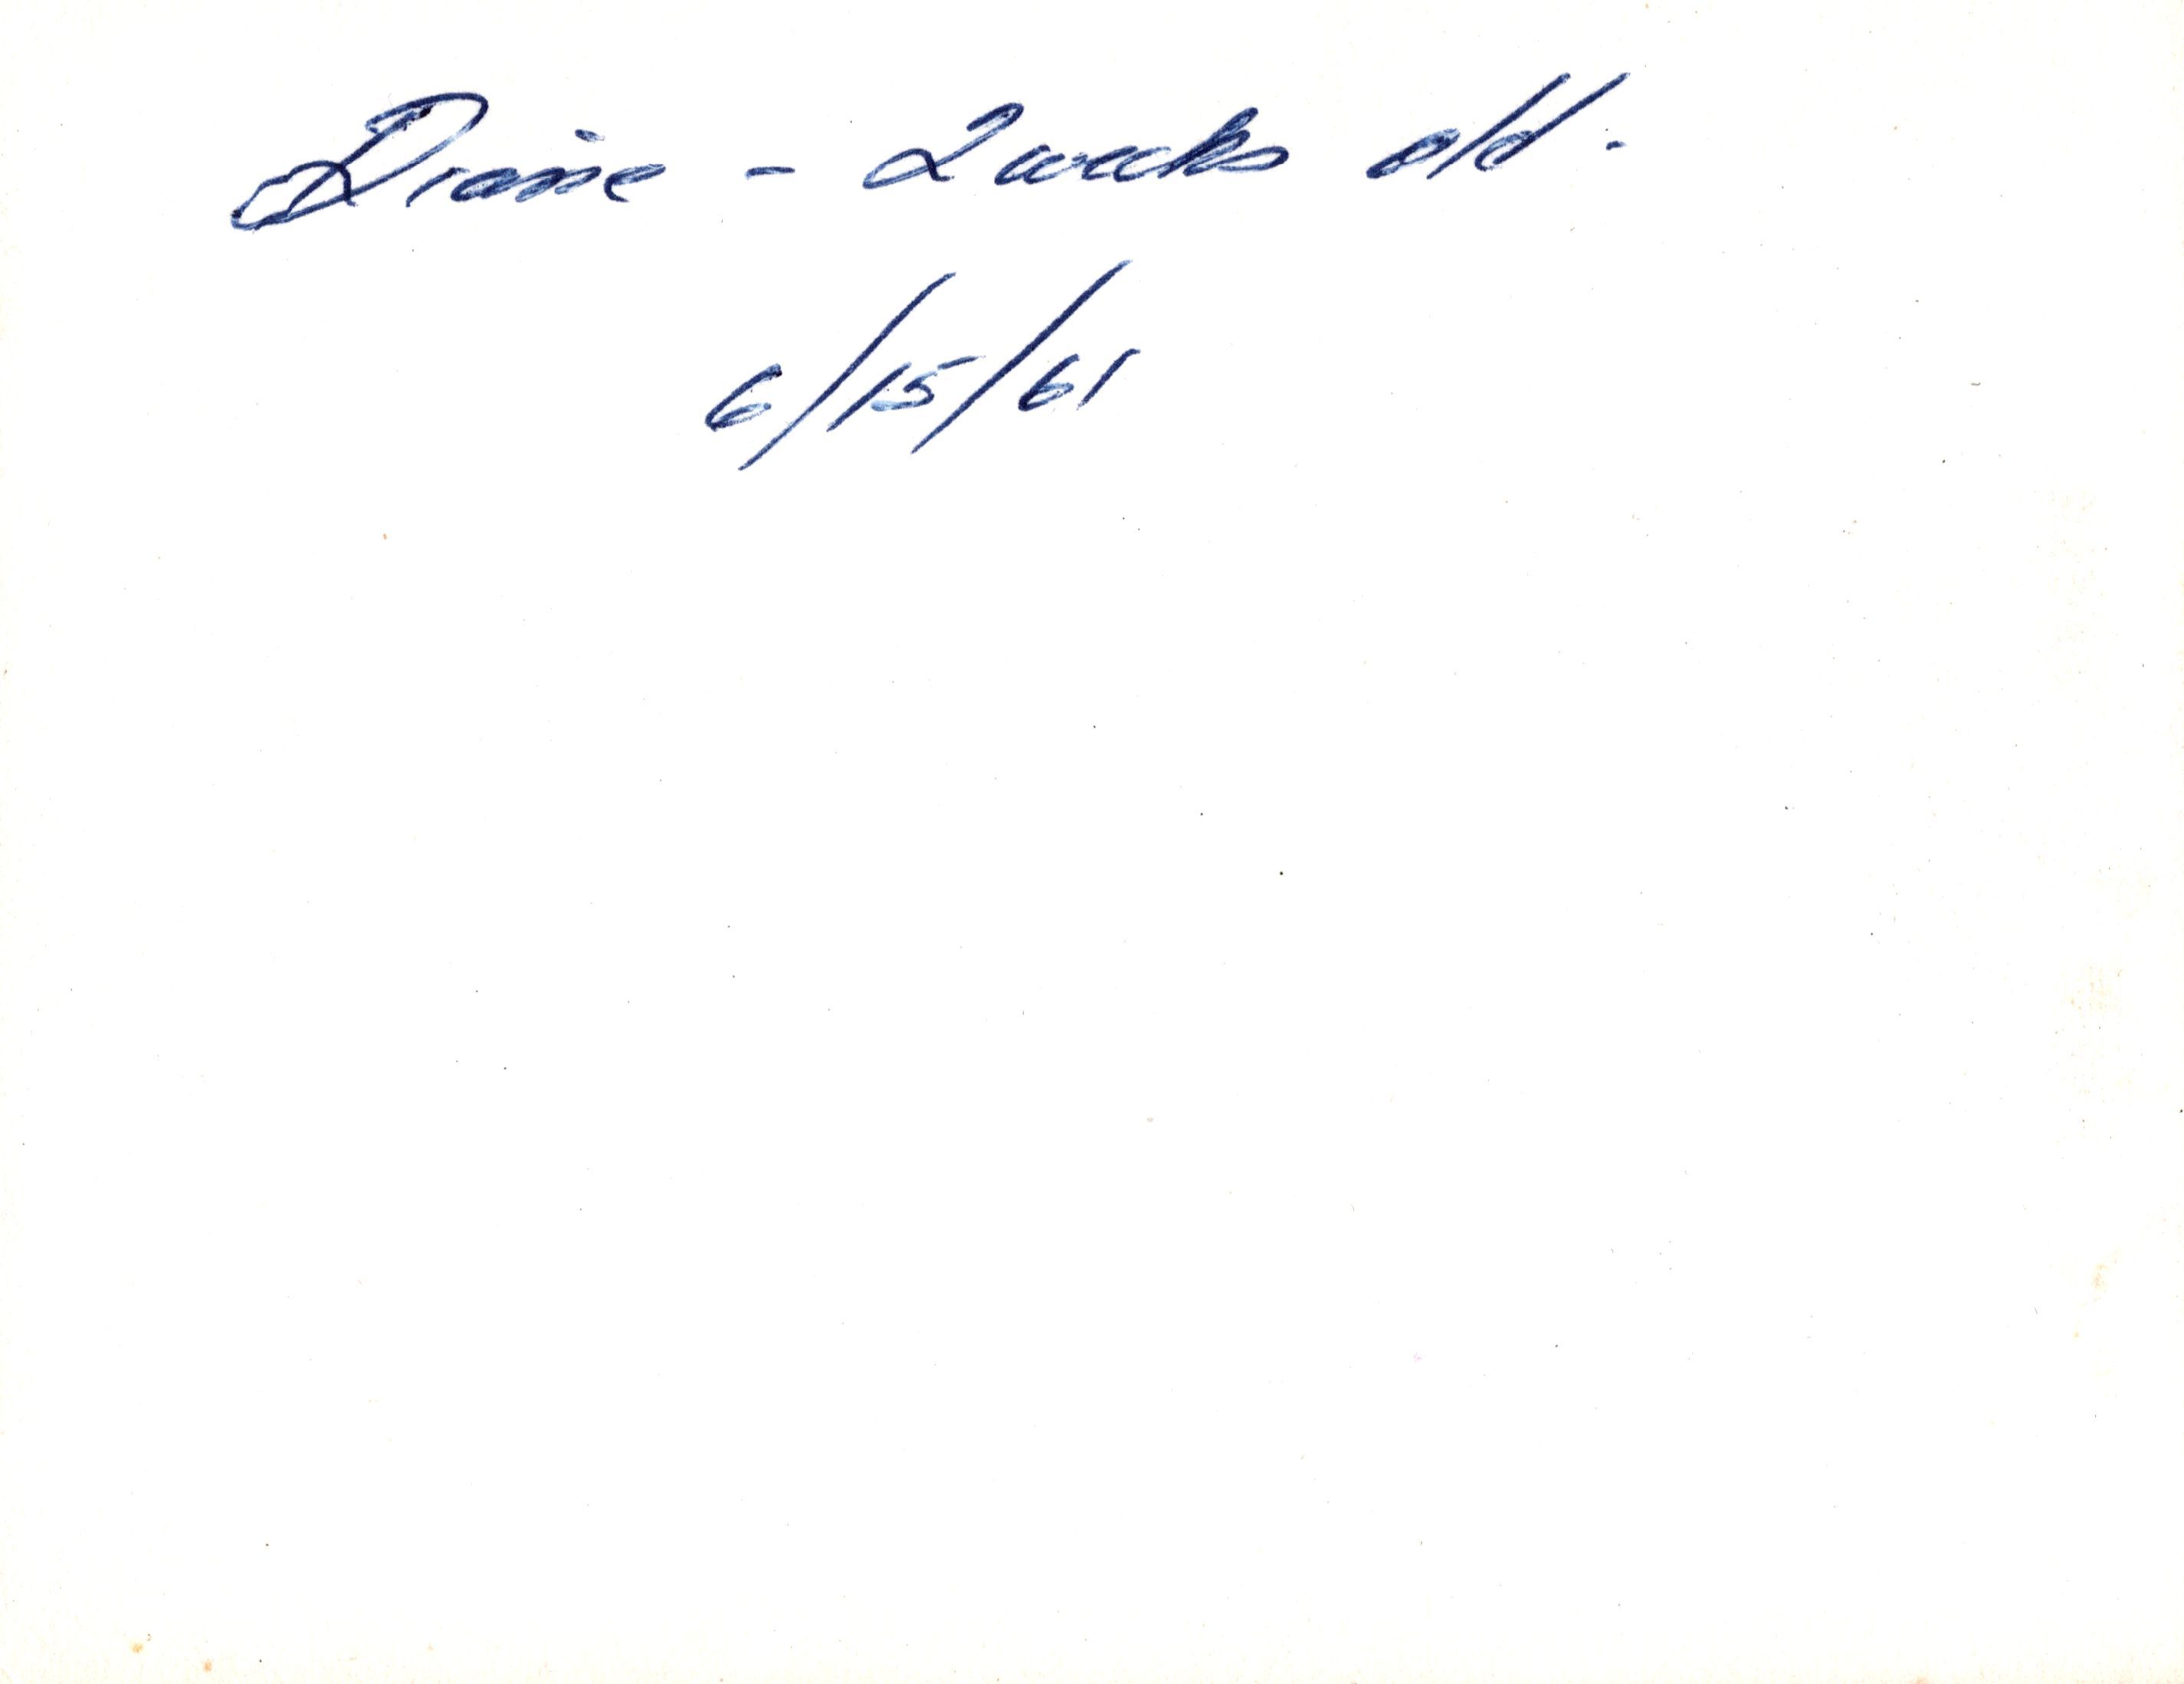 Diane - 2 weeks old.
6/15/61